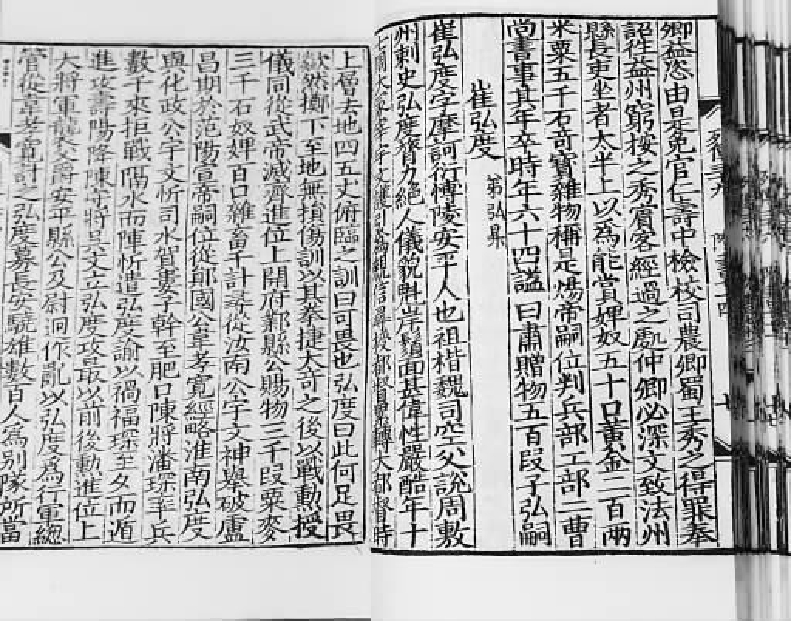 卿益恣由是免官仁壽中檢校司農卿蜀王秀之得罪奉
詔往益州窮按之秀賓客經過之處仲卿必深文致法州
縣長吏坐者太半上以爲能賞婢奴五十口黃金二百兩
米粟五千石奇寶雜物稱是煬帝嗣位判兵部工部二曹
尚書事其年卒時年六十四謚曰肅贈物五百段子弘嗣
崔弘度 弟弘昇
崔弘度字摩訶衍博陵安平人也祖楷魏司空父說周敷
州刺史弘度膂力絕人儀貌魁岸鬚面甚偉性嚴酷年十
七周大冢宰宇文護引爲親信尋授都督累轉大都督時
上層去地四五丈俯臨之訓曰可畏也弘度曰此何足畏
歘然擲下至地無損傷訓以其拳捷大奇之後以戰勳授
儀同從武帝滅齊進位上開府鄴縣公賜物三千段粟麥
三千石奴婢百口雜畜千計尋從汝南公宇文神舉破盧
昌期於范陽宣帝嗣位從鄖國公韋孝寬經略淮南弘度
與化政公宇文忻司水賀婁子幹至肥口陳將潘琛率兵
數千來拒戰隔水而陣忻遣弘度諭以禍福琛至夕而遁
進攻壽陽降陳守將吳文立弘度攻最以前後勳進位上
大將軍襲父爵安平縣公及尉迥作亂以弘度爲行軍總
管從韋孝寬討之弘度募長安驍雄數百人爲別隊所當